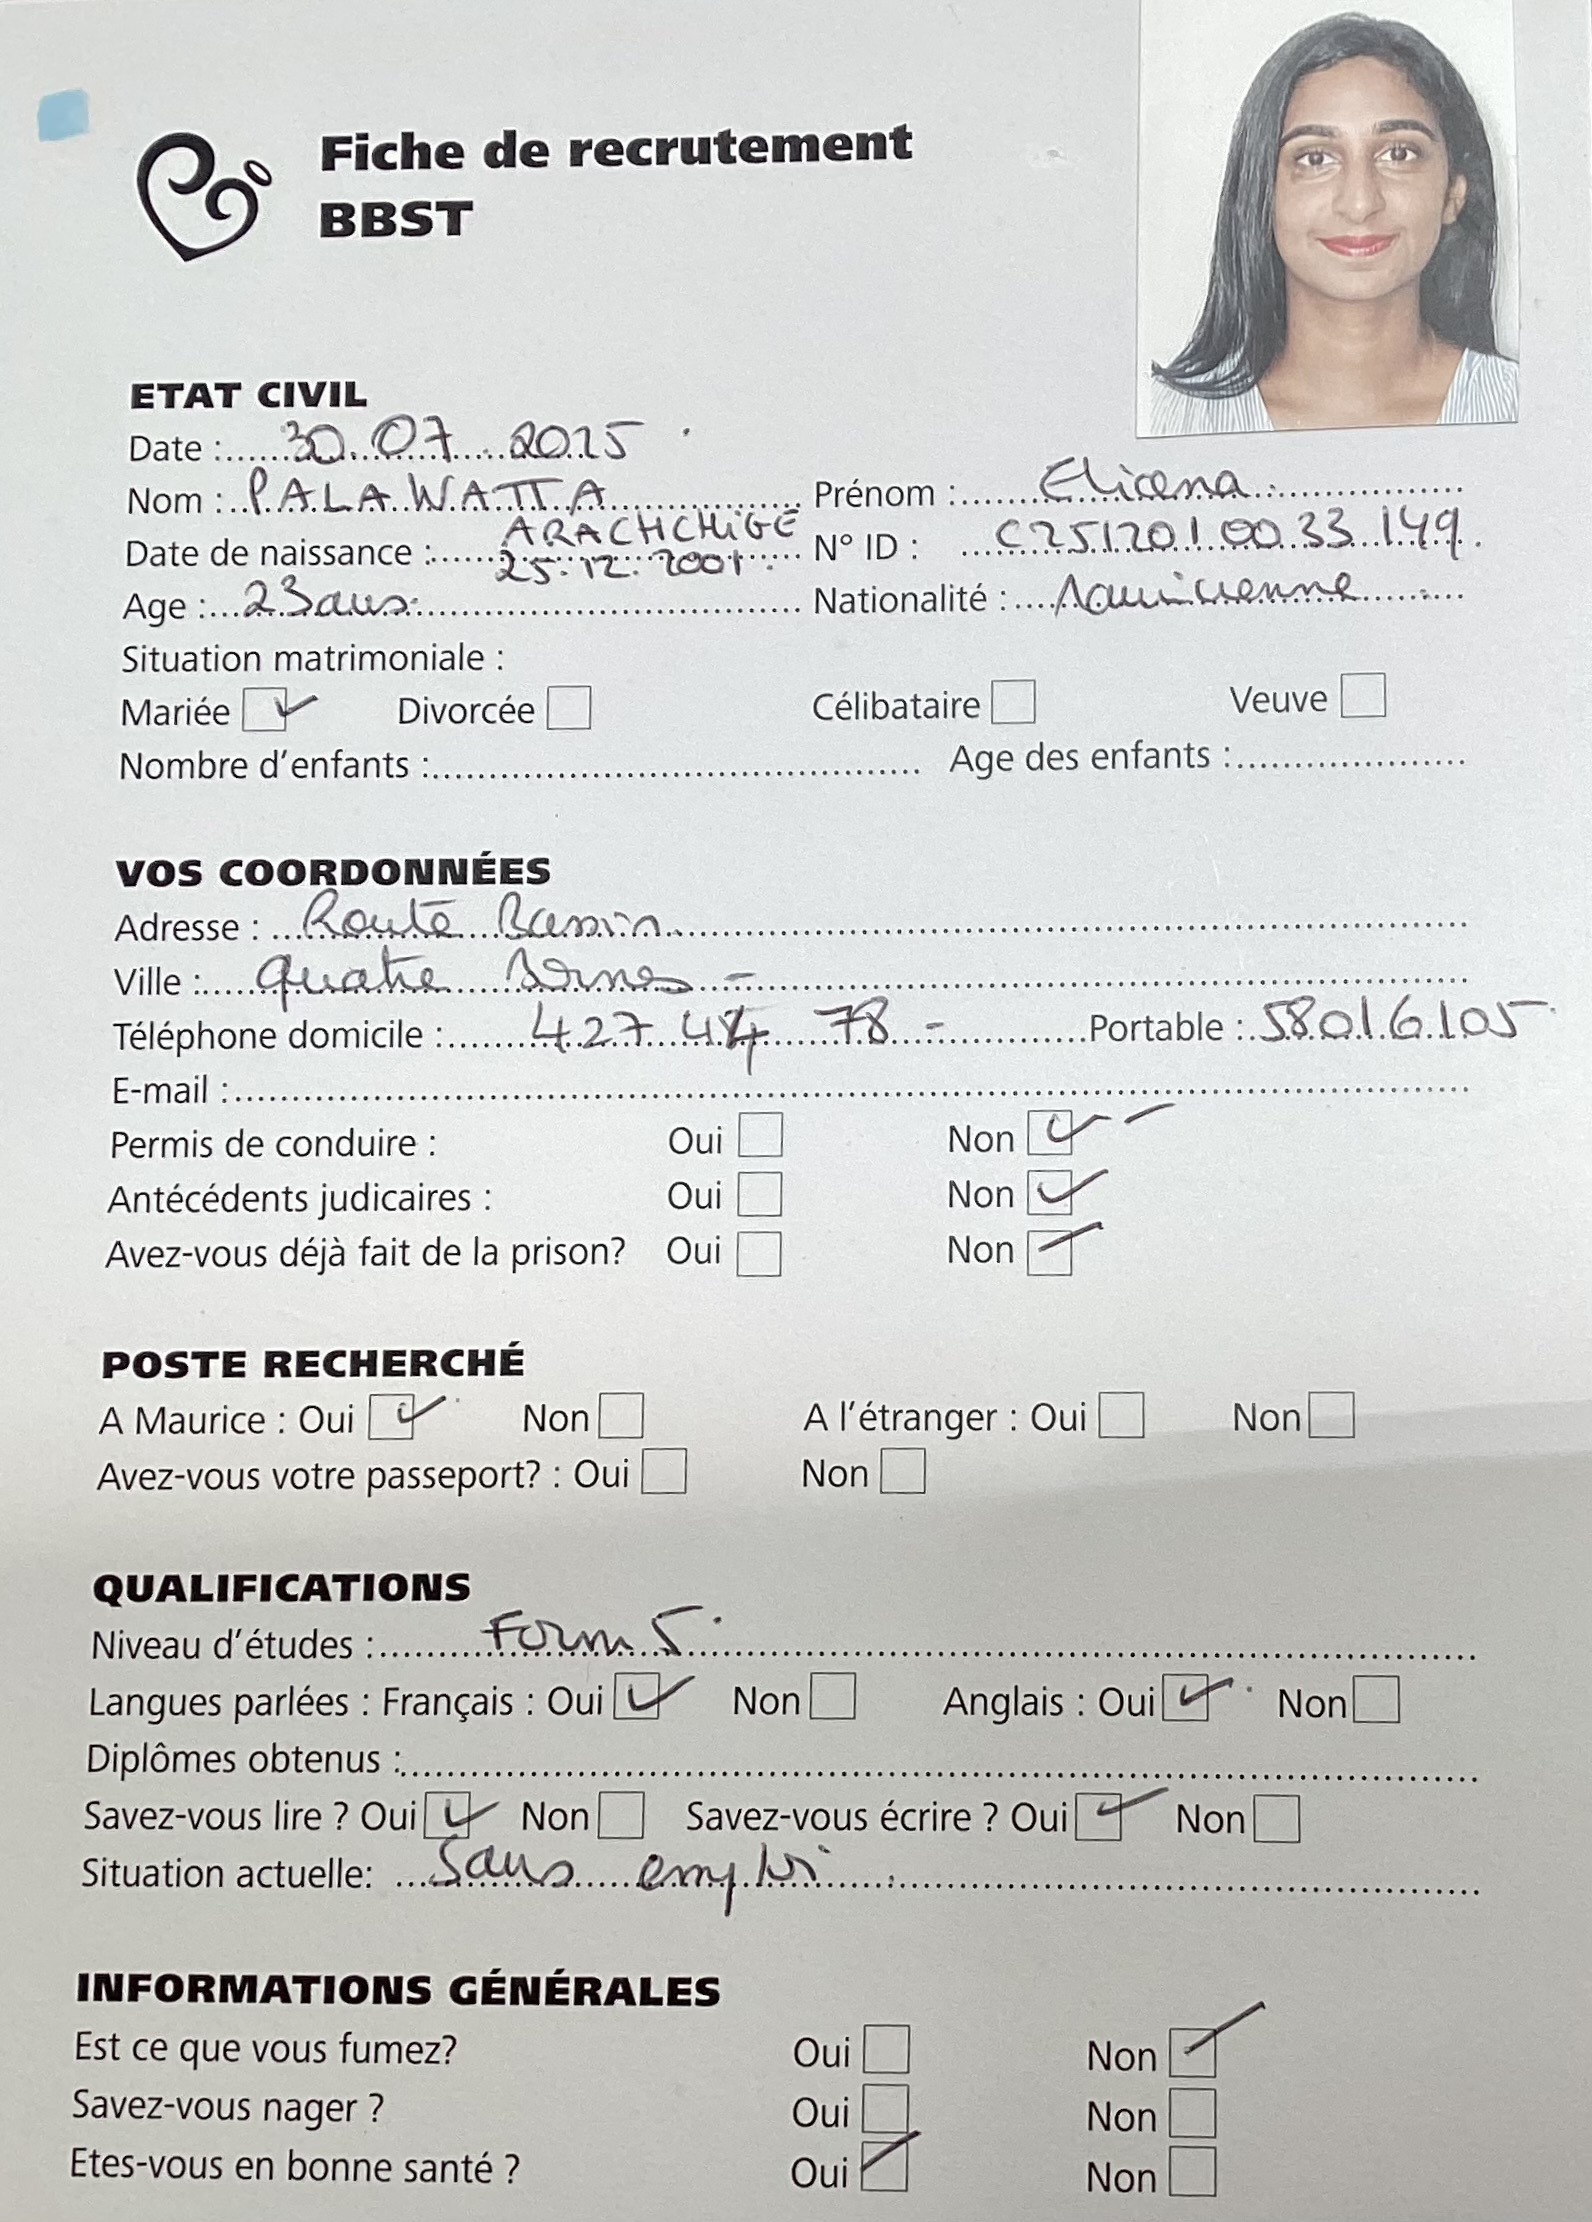 Fiche de recrutement
BBST
ETAT CIVIL
Date : 30.07.2025
Nom : PALAWATTA Prénom : Elicena
ARACHCHiGE
Date de naissance : 25.12.2001 N° ID : C251201 00 33 149
Age : 23 ans Nationalité :
Situation matrimoniale :
Mariée ✓ Divorcée Célibataire Veuve
Nombre d'enfants : Age des enfants :
VOS COORDONNÉES
Adresse : Route Bassin
Ville : Quatre Bornes -
Téléphone domicile : 427 78 - Portable : 58016105
E-mail :
Permis de conduire : Oui Non ✓
Antécédents judicaires : Oui Non ✓
Avez-vous déjà fait de la prison? Oui Non ✓
POSTE RECHERCHÉ
A Maurice : Oui ✓ Non A l'étranger : Oui Non
Avez-vous votre passeport? : Oui Non
QUALIFICATIONS
Niveau d'études : Form 5
Langues parlées : Français : Oui ✓ Non Anglais : Oui ✓ Non
Diplômes obtenus :
Savez-vous lire ? Oui ✓ Non Savez-vous écrire ? Oui ✓ Non
Situation actuelle: Sans emploi
INFORMATIONS GÉNÉRALES
Est ce que vous fumez? Oui Non ✓
Savez-vous nager ? Oui Non
Etes-vous en bonne santé ? Oui ✓ Non